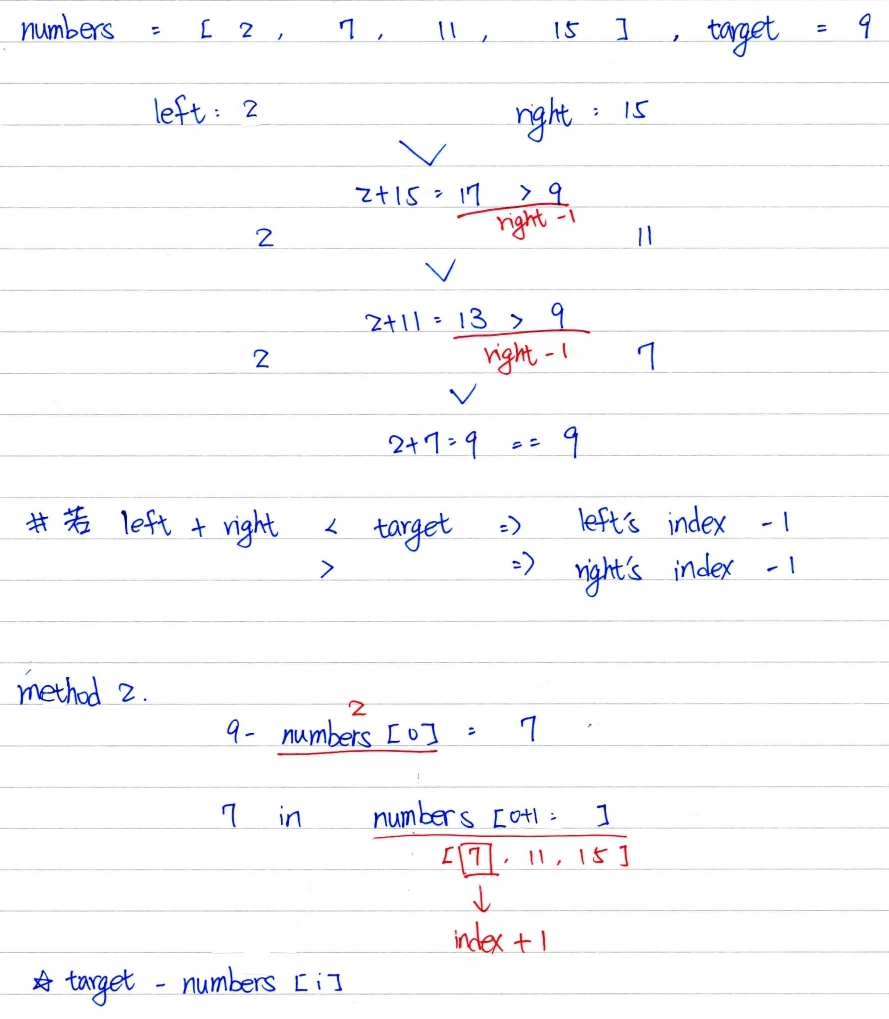 numbers = [ 2 , 7 , 11 , 15 ] , target = 9
left : 2 right : 15
2+15 = 17 > 9
right -1
2 11
2+11 = 13 > 9
right -1
2 7
2+7=9 == 9
# 若 left + right < target => left's index -1
> => right's index -1
method 2.
2
9- numbers [0] = 7
7 in numbers [0+1 : ]
[7, 11, 15]
↓
index +1
☆ target - numbers [i]